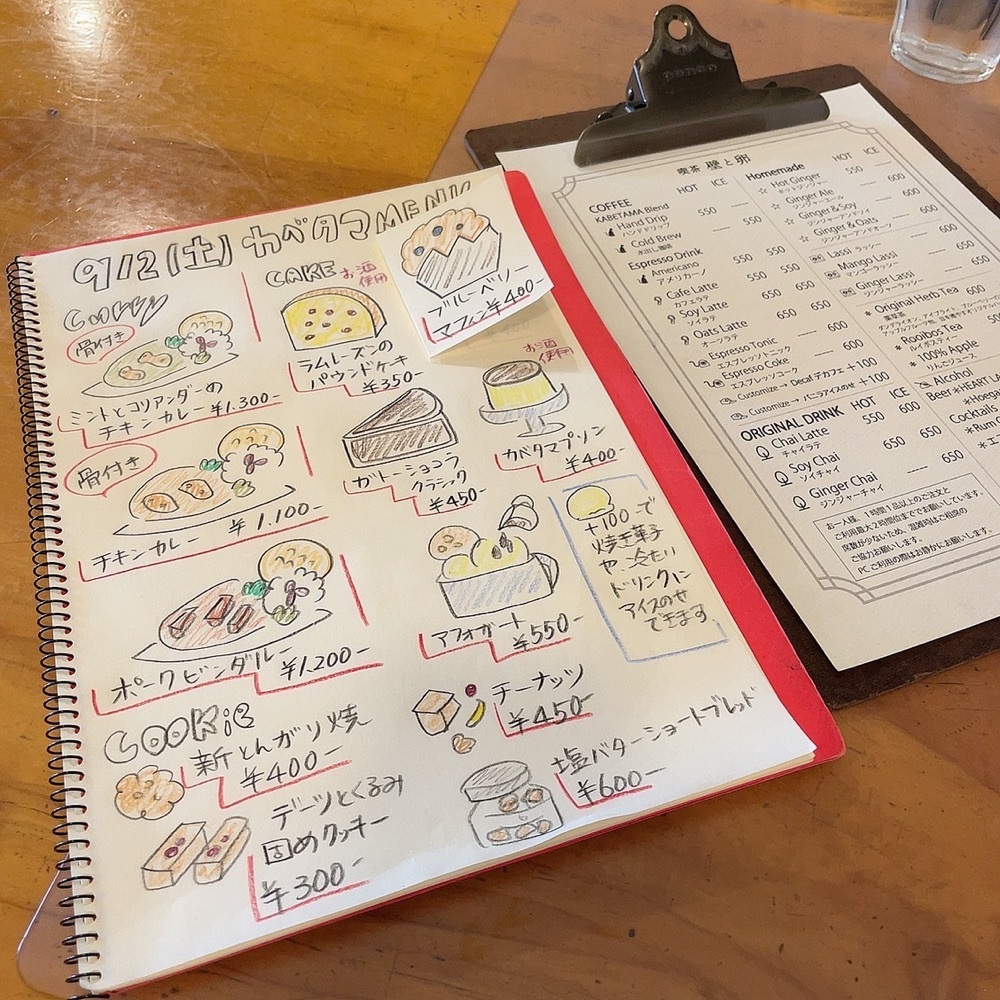 9/12(土) カベタマMENU
CURRY
骨付き
ミントとコリアンダーの
チキンカレー ¥1.300-
骨付き
¥1.100-
チキンカレー
ポークビンダルー ¥1.200-
CAKE お酒
使用
ラムレーズンの
パウンドケーキ
¥350-
ブルーベリー
マフィン ¥400-
ガトーショコラ
クラシック
¥450-
お酒
使用
カベタマプリン
¥400-
アフォガート
¥550-
+100-で
焼き菓子
や、冷たい
ドリンクに
アイスのせ
できます
COOKiE
新とんがり焼
¥400-
デーツとくるみ
固めクッキー
¥300-
チーナッツ
¥450-
塩バターショートブレッド
¥600-
喫茶 壁と卵
HOT ICE
COFFEE
KABETAMA Blend
Hand Drip 550
ハンドドリップ
Cold Brew 550
水出し珈琲
Espresso Drink
Americano 550 550
アメリカーノ
Cafe Latte 550 550
カフェラテ
Soy Latte 650 650
ソイラテ
Oats Latte 650 650
オーツラテ
Espresso Tonic 600
エスプレッソトニック
Espresso Coke 600
エスプレッソコーク
Customize→ Decaf デカフェ +100
Customize→ バニラアイスのせ +100
ORIGINAL DRINK HOT ICE
Chai Latte 550 600
チャイラテ
Soy Chai 650 650
ソイチャイ
Ginger Chai 650
ジンジャーチャイ
お一人様、1時間1品以上のご注文と
ご利用最大2時間位まででお願いしています。
席数が少ないため、混雑時はご相席の
ご協力お願いします。
PCご利用の際はお静かにお願いします。
Homemade HOT ICE
Hot Ginger 550
ホットジンジャー
Ginger Ale 600
ジンジャーエール
Ginger & Soy
ジンジャーアンドソイ
Ginger & Oats
ジンジャーアンドオーツ
Lassi ラッシー
Mango Lassi
マンゴーラッシー
Ginger Lassi
ジンジャーラッシー
Original Herb Tea
Rooibos Tea
ルイボスティー
100% Apple
りんごジュース
Alcohol
Beer
Cocktails